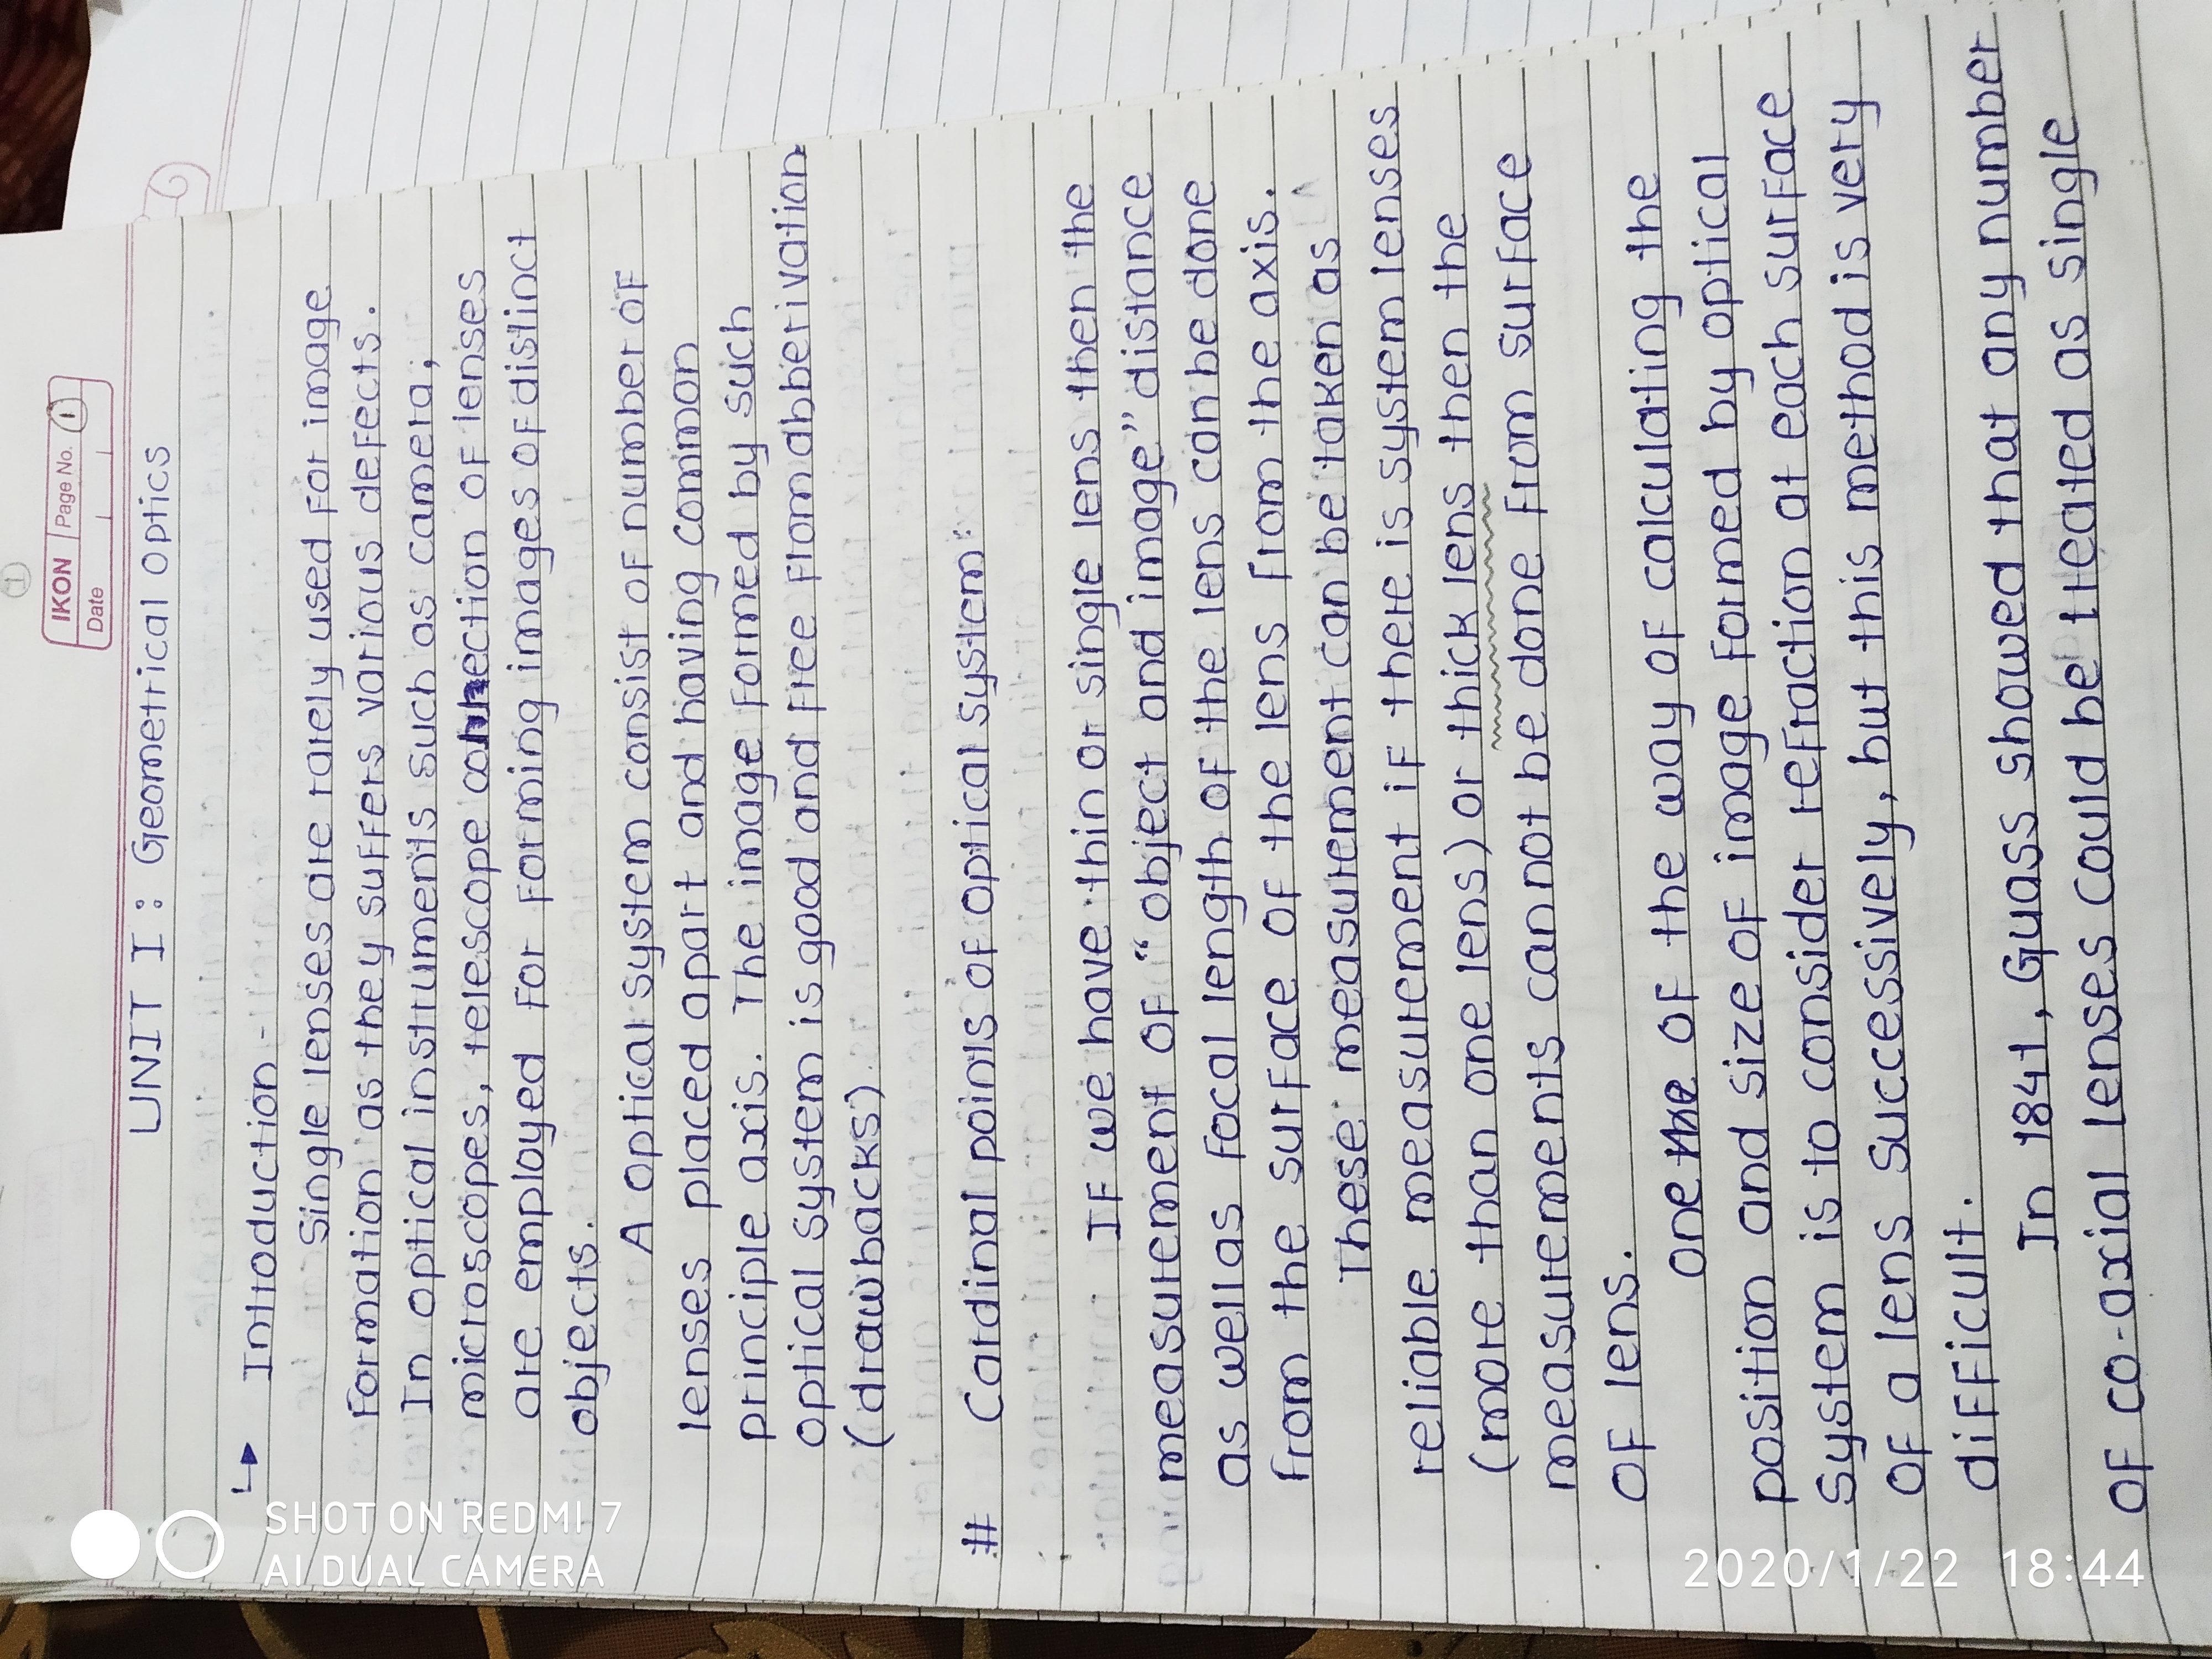 IKON
Page No. 1
Date
UNIT I : Geometrical Optics
↳ Introduction -
Single lenses are rarely used for image
formation as they suffers various defects.
In optical instruments such as camera,
microscopes, telescope connection of lenses
are employed for forming images of distinct
objects.
A optical system consist of number of
lenses placed apart and having common
principle axis. The image formed by such
optical system is good and free flomabberivation
(drawbacks)
# Cardinal points of optical system:
If we have thin or single lens then the
measurement of "object and image" distance
as well as focal length of the lens can be done
from the surface of the lens from the axis.
These measurement can be taken as
reliable measurement if there is system lenses
(more than one lens) or thick lens then the
measurements can not be done from surface
of lens.
one of the way of calculating the
position and size of image formed by optical
system is to consider refraction at each surface
of a lens successively, but this method is very
difficult.
In 1841, Guass showed that any number
of co-axial lenses could be treated as single
SHOT ON REDMI 7
AI DUAL CAMERA
2020/1/22 18:44